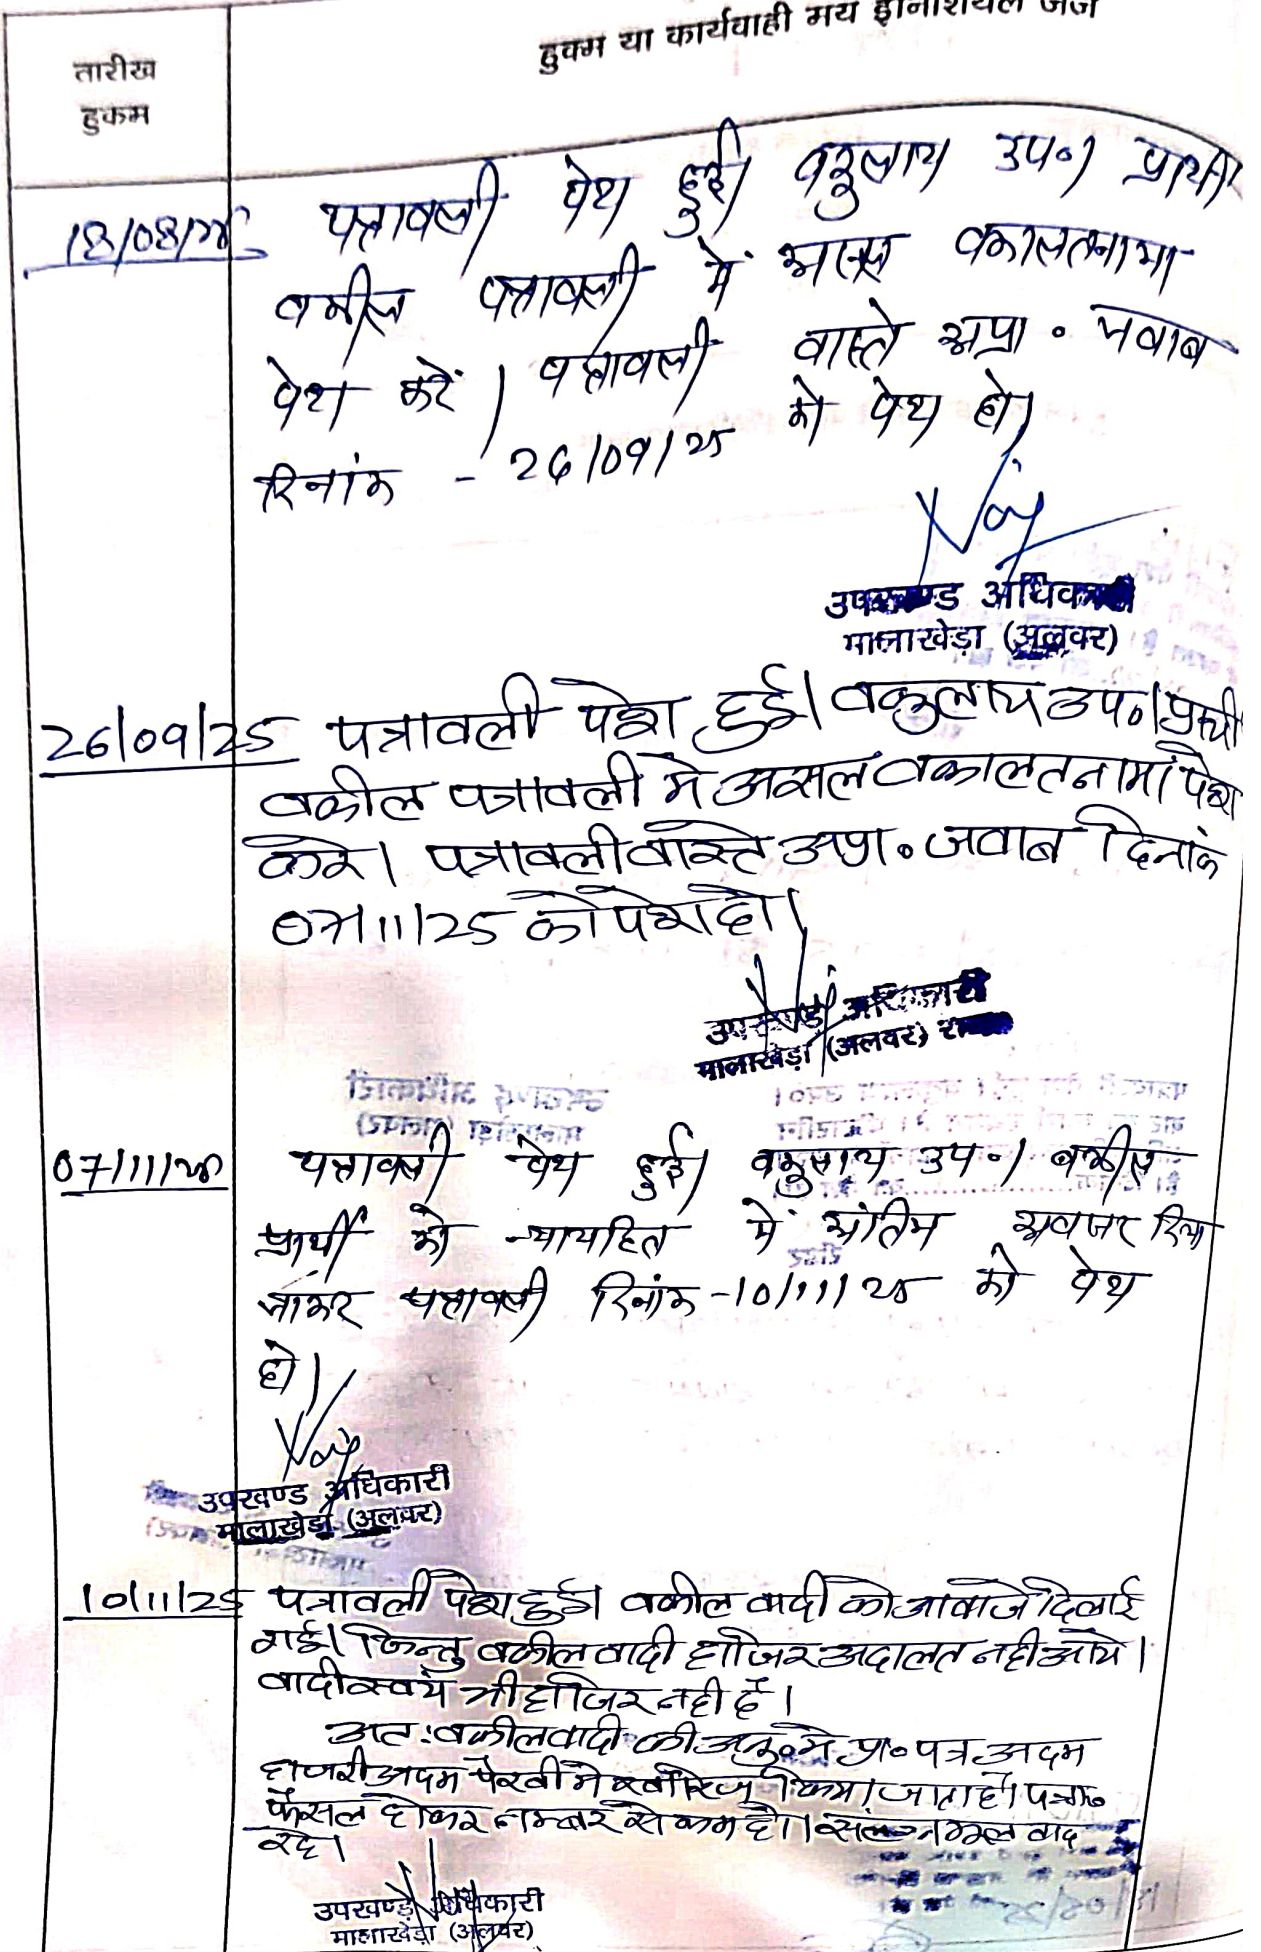 हुकम या कार्यवाही मय इनिशियल जज
तारीख
हुकम
18/08/25 पत्रावली पेश हुई। वकुलाय उप०। प्रार्थी
वकील पत्रावली में असल वकालतनामा
पेश करें। पत्रावली वास्ते अप्रा० जवाब
दिनांक - 26/09/25 को पेश हो।
उपखण्ड अधिकारी
मालाखेड़ा (अलवर)
26/09/25 पत्रावली पेश हुई। वकुलाय उप०। प्रार्थी
वकील पत्रावली मे असल वकालतनामा पेश
करे। पत्रावली वास्ते अप्रा० जवाब दिनांक
07/11/25 को पेश हो।
उपखण्ड अधिकारी
मालाखेड़ा (अलवर) राज०
07/11/25 पत्रावली पेश हुई। वकुलाय उप०। वकील
प्रार्थी को न्यायहित में अंतिम अवसर दिया
जाकर पत्रावली दिनांक -10/11/25 को पेश
हो।
उपखण्ड अधिकारी
मालाखेड़ा (अलवर)
10/11/25 पत्रावली पेश हुई। वकील वादी को आवाजे दिलाई
गई। किन्तु वकील वादी हाजिर अदालत नही आये।
वादी स्वयं भी हाजिर नही है।
अत: वकील वादी की अनु० मे प्रा० पत्र अदम
हाजरी अदम पैरवी मे खारिज किया जाता है। पत्रा०
फैसल होकर नम्बर से कम हो। संलग्न मूल वाद
रहे।
उपखण्ड अधिकारी
मालाखेड़ा (अलवर)